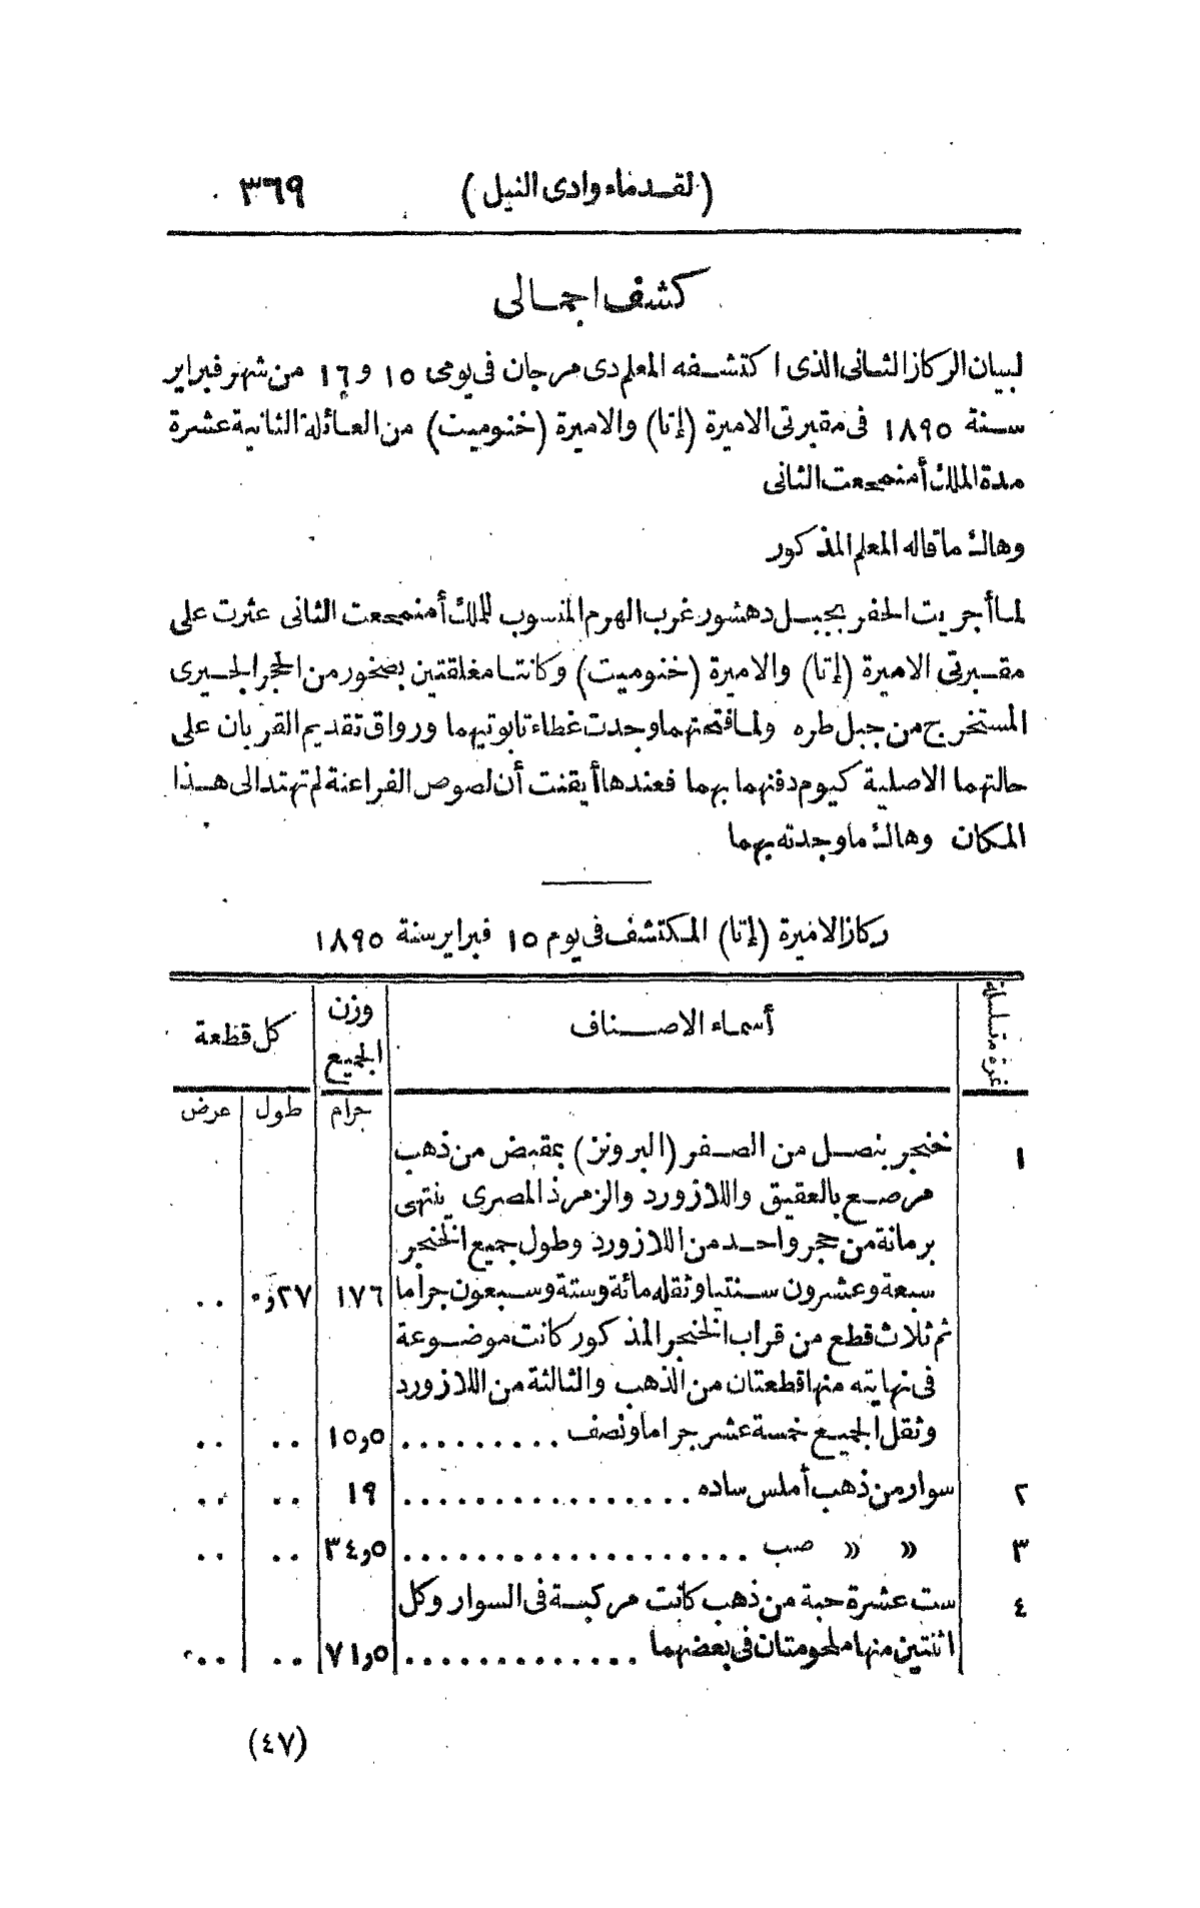 (لقدماء وادى النيل) ٣٦٩
كشف اجمالى
لبيان الركاز الثانى الذى اكتشفه المعلم دى مرجان فى يومى ١٥ و ١٦ من شهر فبراير
سنة ١٨٩٥ فى مقبرتى الاميرة (إتا) والاميرة (خنوميت) من العائلة الثانية عشرة
مدة الملك أمنمحعت الثانى
وهاك ماقاله المعلم المذكور
لما أجريت الحفر بجبل دهشور غرب الهرم المنسوب للملك أمنمحعت الثانى عثرت على
مقبرتى الاميرة (إتا) والاميرة (خنوميت) وكانتا مغلقتين بصخور من الحجر الجيرى
المستخرج من جبل طره ولما فتحتهما وجدت غطاء تابوتيهما ورواق تقديم القربان على
حالتهما الاصلية كيوم دفنهما بهما فعندها أيقنت أن لصوص الفراعنة لم تهتد الى هذا
المكان وهاك ماوجدته بهما
ركاز الاميرة (إتا) المكتشف فى يوم ١٥ فبراير سنة ١٨٩٥
نمرة متسلسلة أسماء الاصناف وزن الجميع كل قطعة
جرام طول عرض
١ خنجر بنصل من الصفر (البرونز) بمقبض من ذهب
مرصع بالعقيق واللازورد والزمرذ المصرى ينتهى
برمانة من حجر واحد من اللازورد وطول جميع الخنجر
سبعة وعشرون سنتيا وثقله مائة وستة وسبعون جراما ١٧٦ ٢٧و٠ ..
ثم ثلاث قطع من قراب الخنجر المذكور كانت موضوعة
فى نهايته منها قطعتان من الذهب والثالثة من اللازورد
وثقل الجميع خمسة عشر جراما ونصف .......... ١٥و٥ .. ..
٢ سوار من ذهب أملس ساده ................ ١٩ .. ..
٣ » » صب ................... ٣٤و٥ .. ..
٤ ست عشرة حبة من ذهب كانت مركبة فى السوار وكل
اثنتين منها ملحومتان فى بعضهما ............. ٧١و٥ .. ..
(٤٧)